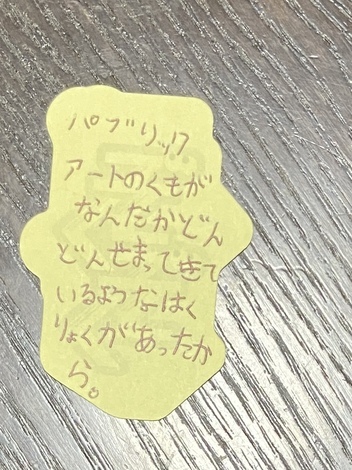 パブリック
アートのくもが
なんだかどん
どんせまってきて
いるようなはく
りょくがあったか
ら。